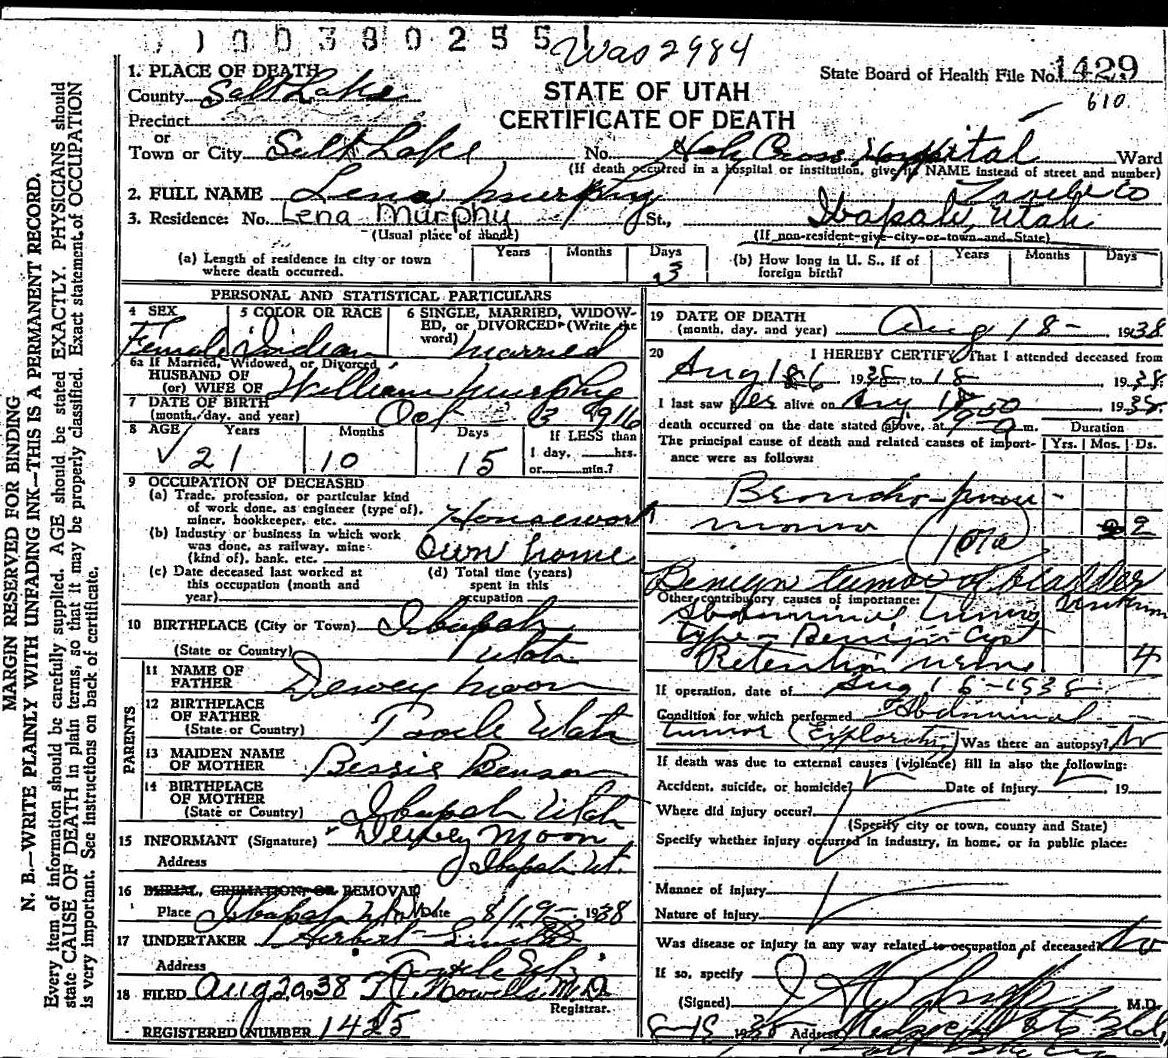 1 0 0 3 8 0 2 5 5
Was 2984
1. PLACE OF DEATH
State Board of Health File No. 1429
County Salt Lake
STATE OF UTAH
610
Precinct
CERTIFICATE OF DEATH
or
Town or City Salt Lake No. Holy Cross Hospital Ward
(If death occurred in a hospital or institution, give its NAME instead of street and number)
2. FULL NAME Lena Murphy
3. Residence: No. Lena Murphy St., Ibapah, Utah
(Usual place of abode)
(If non-resident give city or town and State)
(a) Length of residence in city or town where death occurred. Years Months Days 3
(b) How long in U. S., if of foreign birth? Years Months Days
PERSONAL AND STATISTICAL PARTICULARS
4 SEX Female
5 COLOR OR RACE Indian
6 SINGLE, MARRIED, WIDOWED, or DIVORCED (Write the word) Married
6a If Married, Widowed, or Divorced
HUSBAND OF (or) WIFE OF William Murphy
7 DATE OF BIRTH (month, day, and year) Oct 3 1916
8 AGE Years 21 Months 10 Days 15
If LESS than 1 day, hrs. or min.?
9 OCCUPATION OF DECEASED
(a) Trade, profession, or particular kind of work done, as engineer (type of), miner, bookkeeper, etc. Housework
(b) Industry or business in which work was done, as railway, mine (kind of), bank, etc. Own home
(c) Date deceased last worked at this occupation (month and year)
(d) Total time (years) spent in this occupation
10 BIRTHPLACE (City or Town) Ibapah
(State or Country) Utah
PARENTS
11 NAME OF FATHER Dewey Moon
12 BIRTHPLACE OF FATHER (State or Country) Tooele Utah
13 MAIDEN NAME OF MOTHER Bessie Benson
14 BIRTHPLACE OF MOTHER (State or Country) Ibapah Utah
15 INFORMANT (Signature) Dewey Moon
Address Ibapah Ut.
16 BURIAL, CREMATION, OR REMOVAL
Place Ibapah Utah Date 8/19- 1938
17 UNDERTAKER Herbert
Address Tooele
18 FILED Aug 20, 38 M.D.
Registrar.
REGISTERED NUMBER 1425
19 DATE OF DEATH (month, day, and year) Aug 18- 1938
20 I HEREBY CERTIFY That I attended deceased from
Aug 16 1938 to 18 1938
I last saw her alive on Aug 18 1938
death occurred on the date stated above, at m.
Duration
The principal cause of death and related causes of importance were as follows:
Yrs. Mos. Ds.
Broncho-pneu-
monia 2
(107a)
Benign tumor of bladder
Other contributory causes of importance: Unknown
Abdominal tumor
type - Benign Cyst
Retention urine 4
If operation, date of Aug 16-1938
Condition for which performed Abdominal
tumor (Exploratory) Was there an autopsy? No
If death was due to external causes (violence) fill in also the following:
Accident, suicide, or homicide? Date of injury 19
Where did injury occur?
(Specify city or town, county and State)
Specify whether injury occurred in industry, in home, or in public place:
Manner of injury
Nature of injury
Was disease or injury in any way related to occupation of deceased? No
If so, specify
(Signed) M.D.
Address Medical Arts Bldg
Salt Lake
MARGIN RESERVED FOR BINDING
N. B.—WRITE PLAINLY WITH UNFADING INK—THIS IS A PERMANENT RECORD.
Every item of information should be carefully supplied. AGE should be stated EXACTLY. PHYSICIANS should
state CAUSE OF DEATH in plain terms, so that it may be properly classified. Exact statement of OCCUPATION
is very important. See instructions on back of certificate.